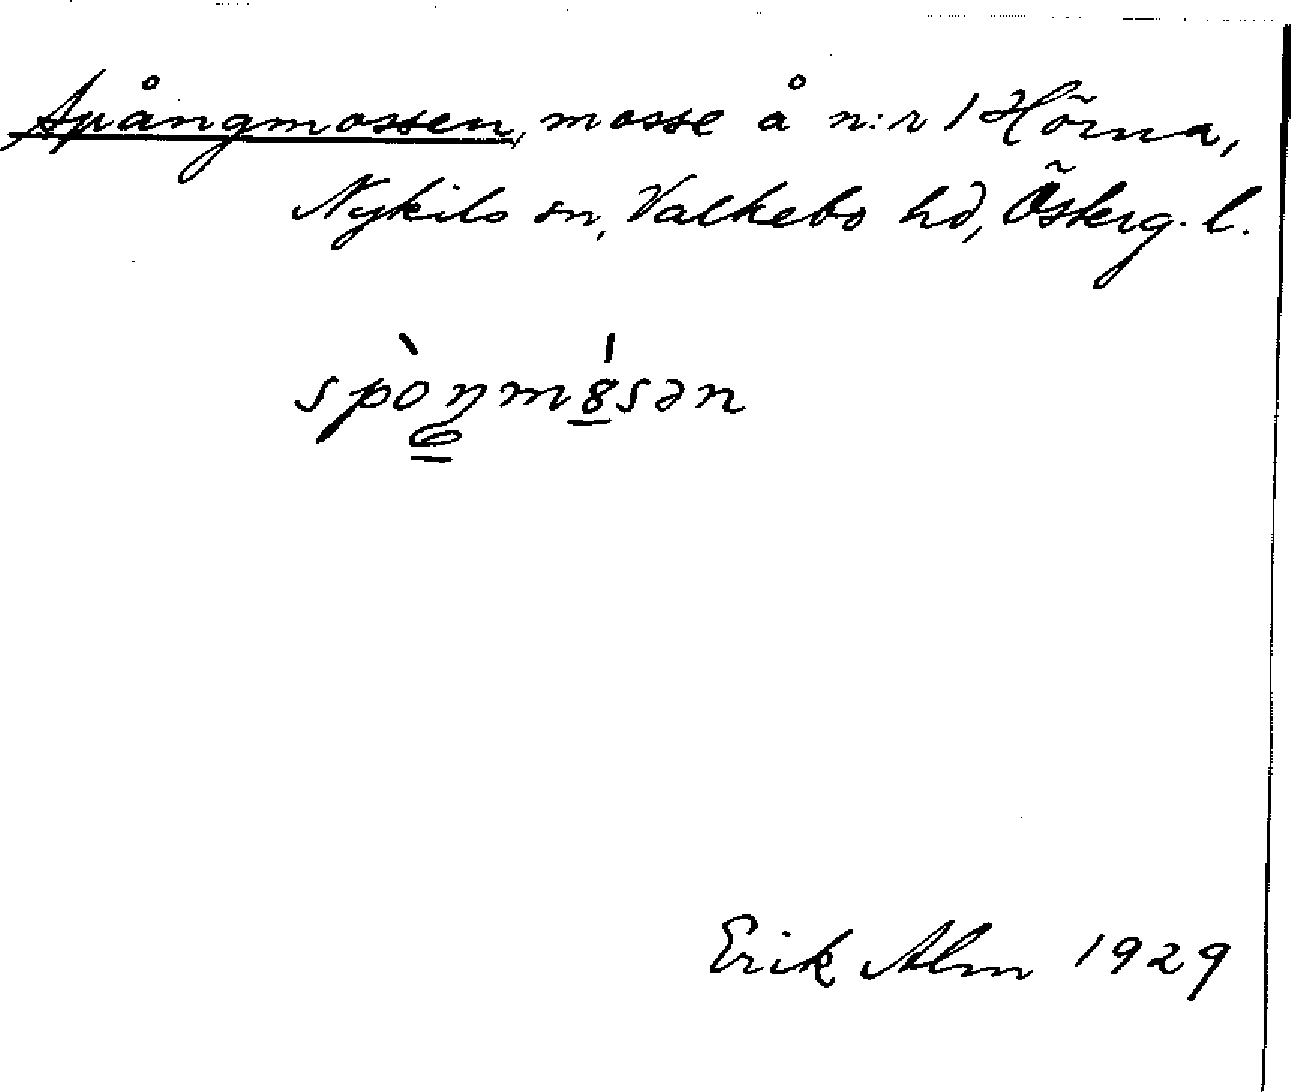 Spångmossen, mosse å n:r 1 Hörna,
Nykils sn, Valkebo hd, Österg. l.
spòŋmósən
Erik Alm 1929